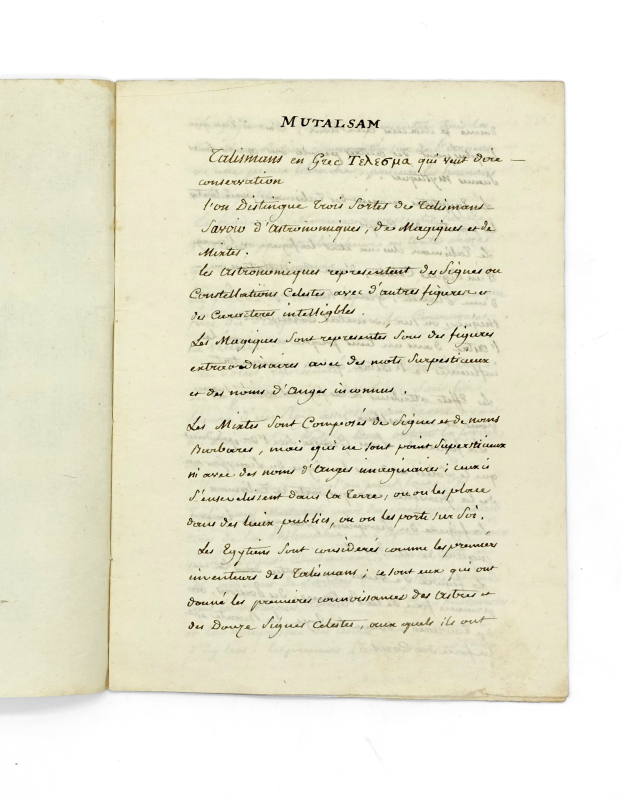 MUTALSAM
Talismans en Grec Τελεσμα qui veut dire —
conservation
l'on Distingue trois sortes de Talismans
Savoir d'astronomiques, de Magiques et de
Mixtes.
les astronomiques representent des Signes ou
Constellations Celestes avec d'autres figures et
des Caracteres intelligbles.
Les Magiques sont representés sous des figures
extraordinaires avec des mots Surpesticieux
et des noms d'anges inconnus.
Les Mixtes sont Composés de Signes et de noms
Barbares, mais qui ne sont point Superstieux
ni avec des noms d'anges imaginaires; ceux ci
s'ensevelissent dans la terre, ou on les place
dans des lieux publics, ou on les porte sur Soi.
Les Egytiens sont considerés comme les premiers
inventeurs des Talismans; ce sont eux qui ont
donné les premieres connoissances des astres et
des Douze Signes Celestes, aux quels ils ont